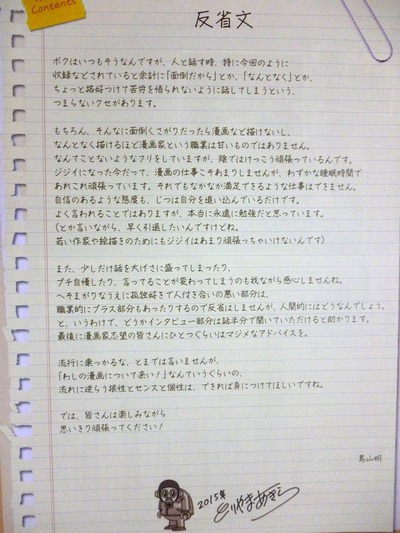 Contents
反省文
ボクはいつもそうなんですが、人と話す時、特に今回のように
収録などされていると余計に「面倒だから」とか、「なんとなく」とか、
ちょっと格好つけて苦労を悟られないように話してしまうという、
つまらないクセがあります。
もちろん、そんなに面倒くさがりだったら漫画など描けないし、
なんとなく描けるほど漫画家という職業は甘いものではありません。
なんてことないようなフリをしていますが、陰ではけっこう頑張っているんです。
ジジイになった今だって、漫画の仕事こそあまりしませんが、わずかな睡眠時間で
あれこれ頑張っています。それでもなかなか満足できるような仕事はできません。
自信のあるような態度も、じつは自分を追い込んでいるだけです。
よく言われることではありますが、本当に永遠に勉強だと思っています。
(とか言いながら、早く引退したいんですけどね。
若い作家や絵描きのためにもジジイはあまり頑張っちゃいけないんです)
また、少しだけ話を大げさに盛ってしまったり、
プチ自慢したり、言ってることが変わってしまうのも我ながら感心しませんね。
ヘそまがりなうえに孤独好きで人付き合いの悪い部分は、
職業的にプラス部分もあったりするので反省はしませんが、人間的にはどうなんでしょう。
と、いうわけで、どうかインタビュー部分は話半分で聞いていただけると助かります。
最後に漫画家志望の皆さんにひとつぐらいはマジメなアドバイスを。
流行に乗っかるな、とまでは言いませんが、
「わしの漫画について来い!」なんていうぐらいの、
流れに逆らう根性とセンスと個性は、できれば身につけてほしいですね。
では、皆さんは楽しみながら
思いきり頑張ってください!
鳥山明
2015年
とりやまあきら